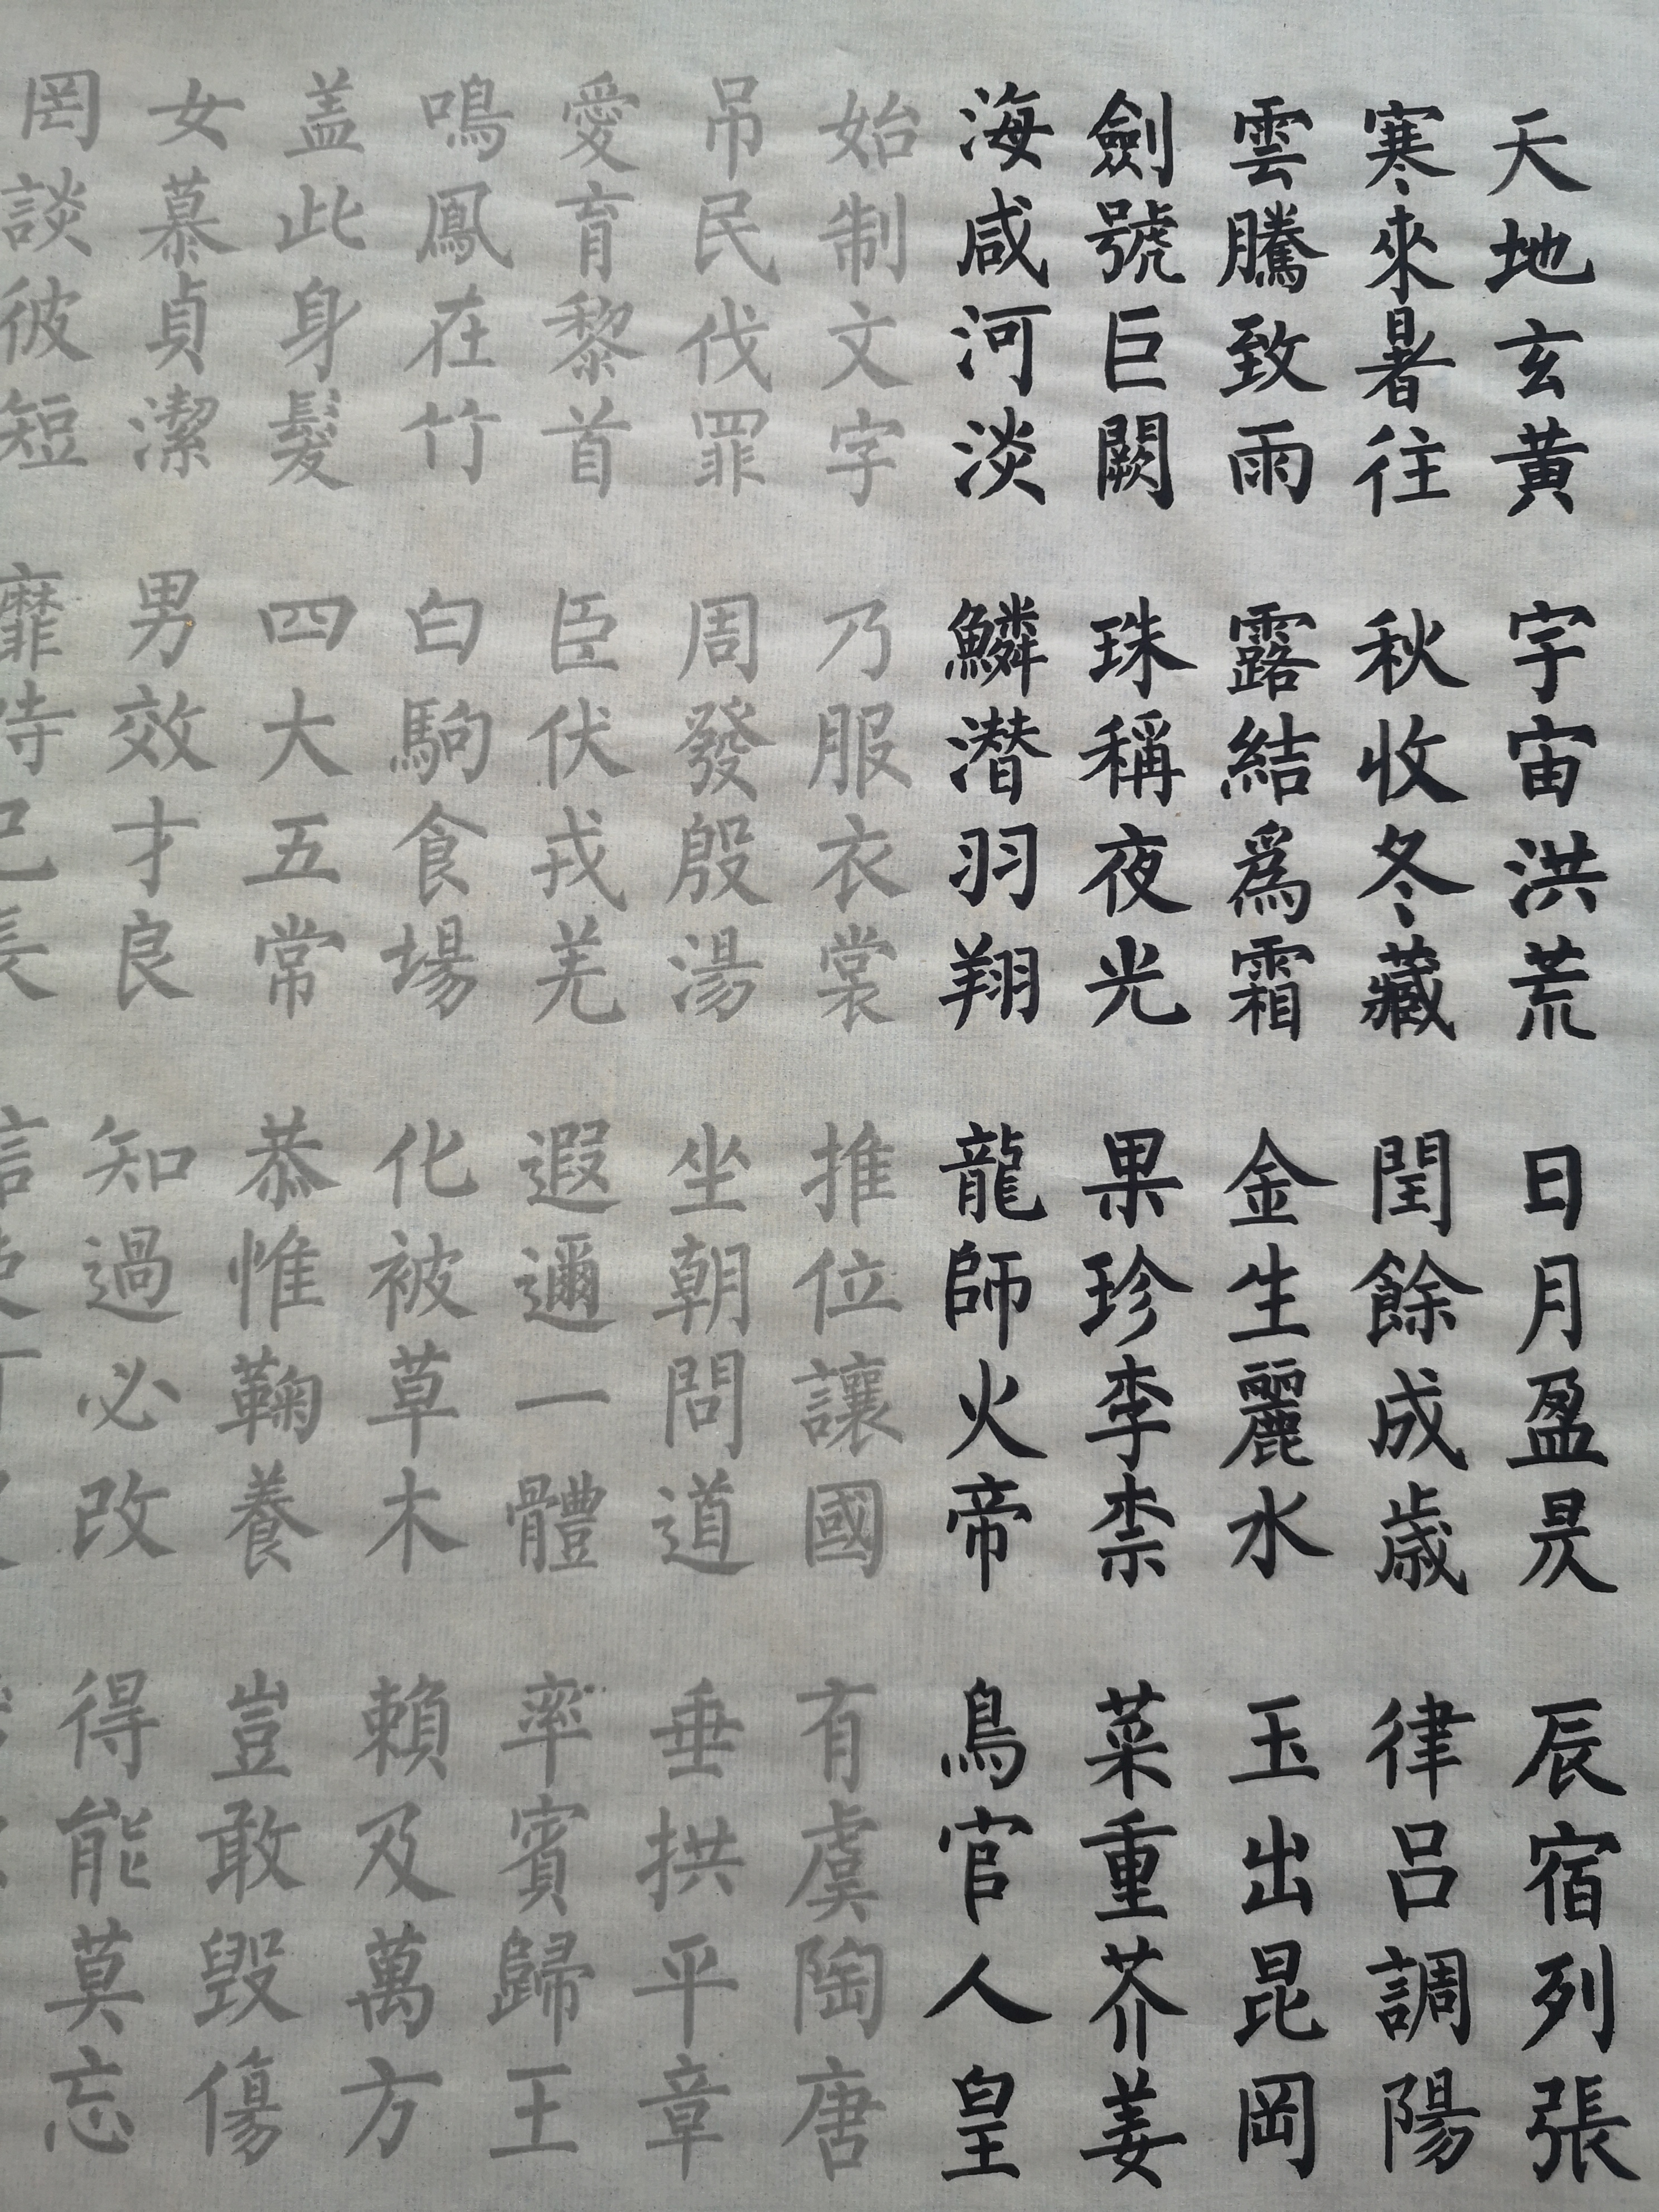 天地玄黄 宇宙洪荒 日月盈昃 辰宿列張
寒來暑往 秋收冬藏 閏餘成歳 律呂調陽
雲騰致雨 露結爲霜 金生麗水 玉出昆岡
劍號巨闕 珠稱夜光 果珍李柰 菜重芥姜
海咸河淡 鱗潜羽翔 龍師火帝 鳥官人皇
始制文字 乃服衣裳 推位讓國 有虞陶唐
吊民伐罪 周發殷湯 坐朝問道 垂拱平章
愛育黎首 臣伏戎羌 遐邇一體 率賓歸王
鳴鳳在竹 白駒食場 化被草木 賴及萬方
盖此身髮 四大五常 恭惟鞠養 豈敢毀傷
女慕貞潔 男效才良 知過必改 得能莫忘
罔談彼短 靡恃己長